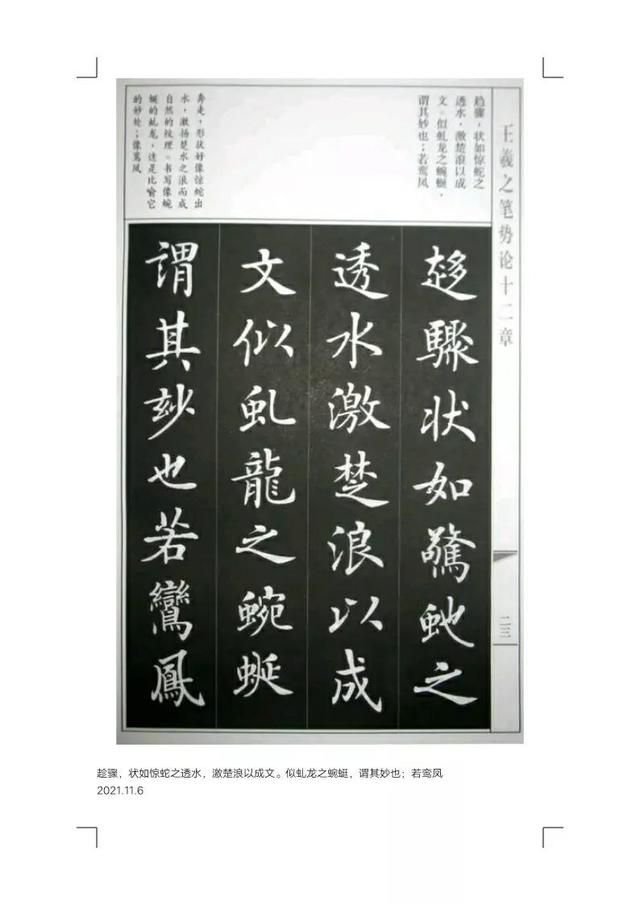 王羲之笔势论十二章
二三
趋骤，状如惊蛇之
透水，激楚浪以成
文。似虬龙之蜿蜒，
谓其妙也；若鸾凤
奔走，形状好像惊蛇出
水，激扬楚水之浪而成
自然的纹理。书写像蜿
蜒的虬龙，这是比喻它
的妙处；像鸾凤
趍驟状如驚虵之
透水激楚浪以成
文似虬龍之蜿蜒
謂其玅也若鸞鳳
趁骤，状如惊蛇之透水，激楚浪以成文。似虬龙之蜿蜓，谓其妙也；若鸾凤
2021.11.6